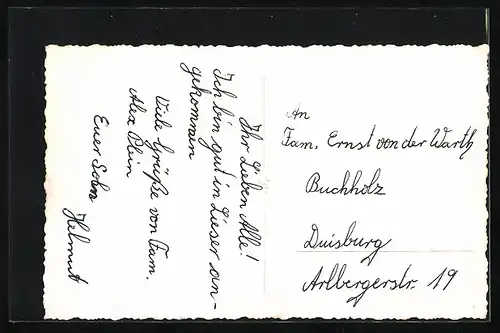 Ihr Lieben Alle!
Ich bin gut in Lieser an-
gekommen
Viele Grüße von Fam.
Alex Plein
Euer Sohn
Helmut
An
Fam. Ernst von der Warth
Buchholz
Duisburg
Arlbergerstr. 19